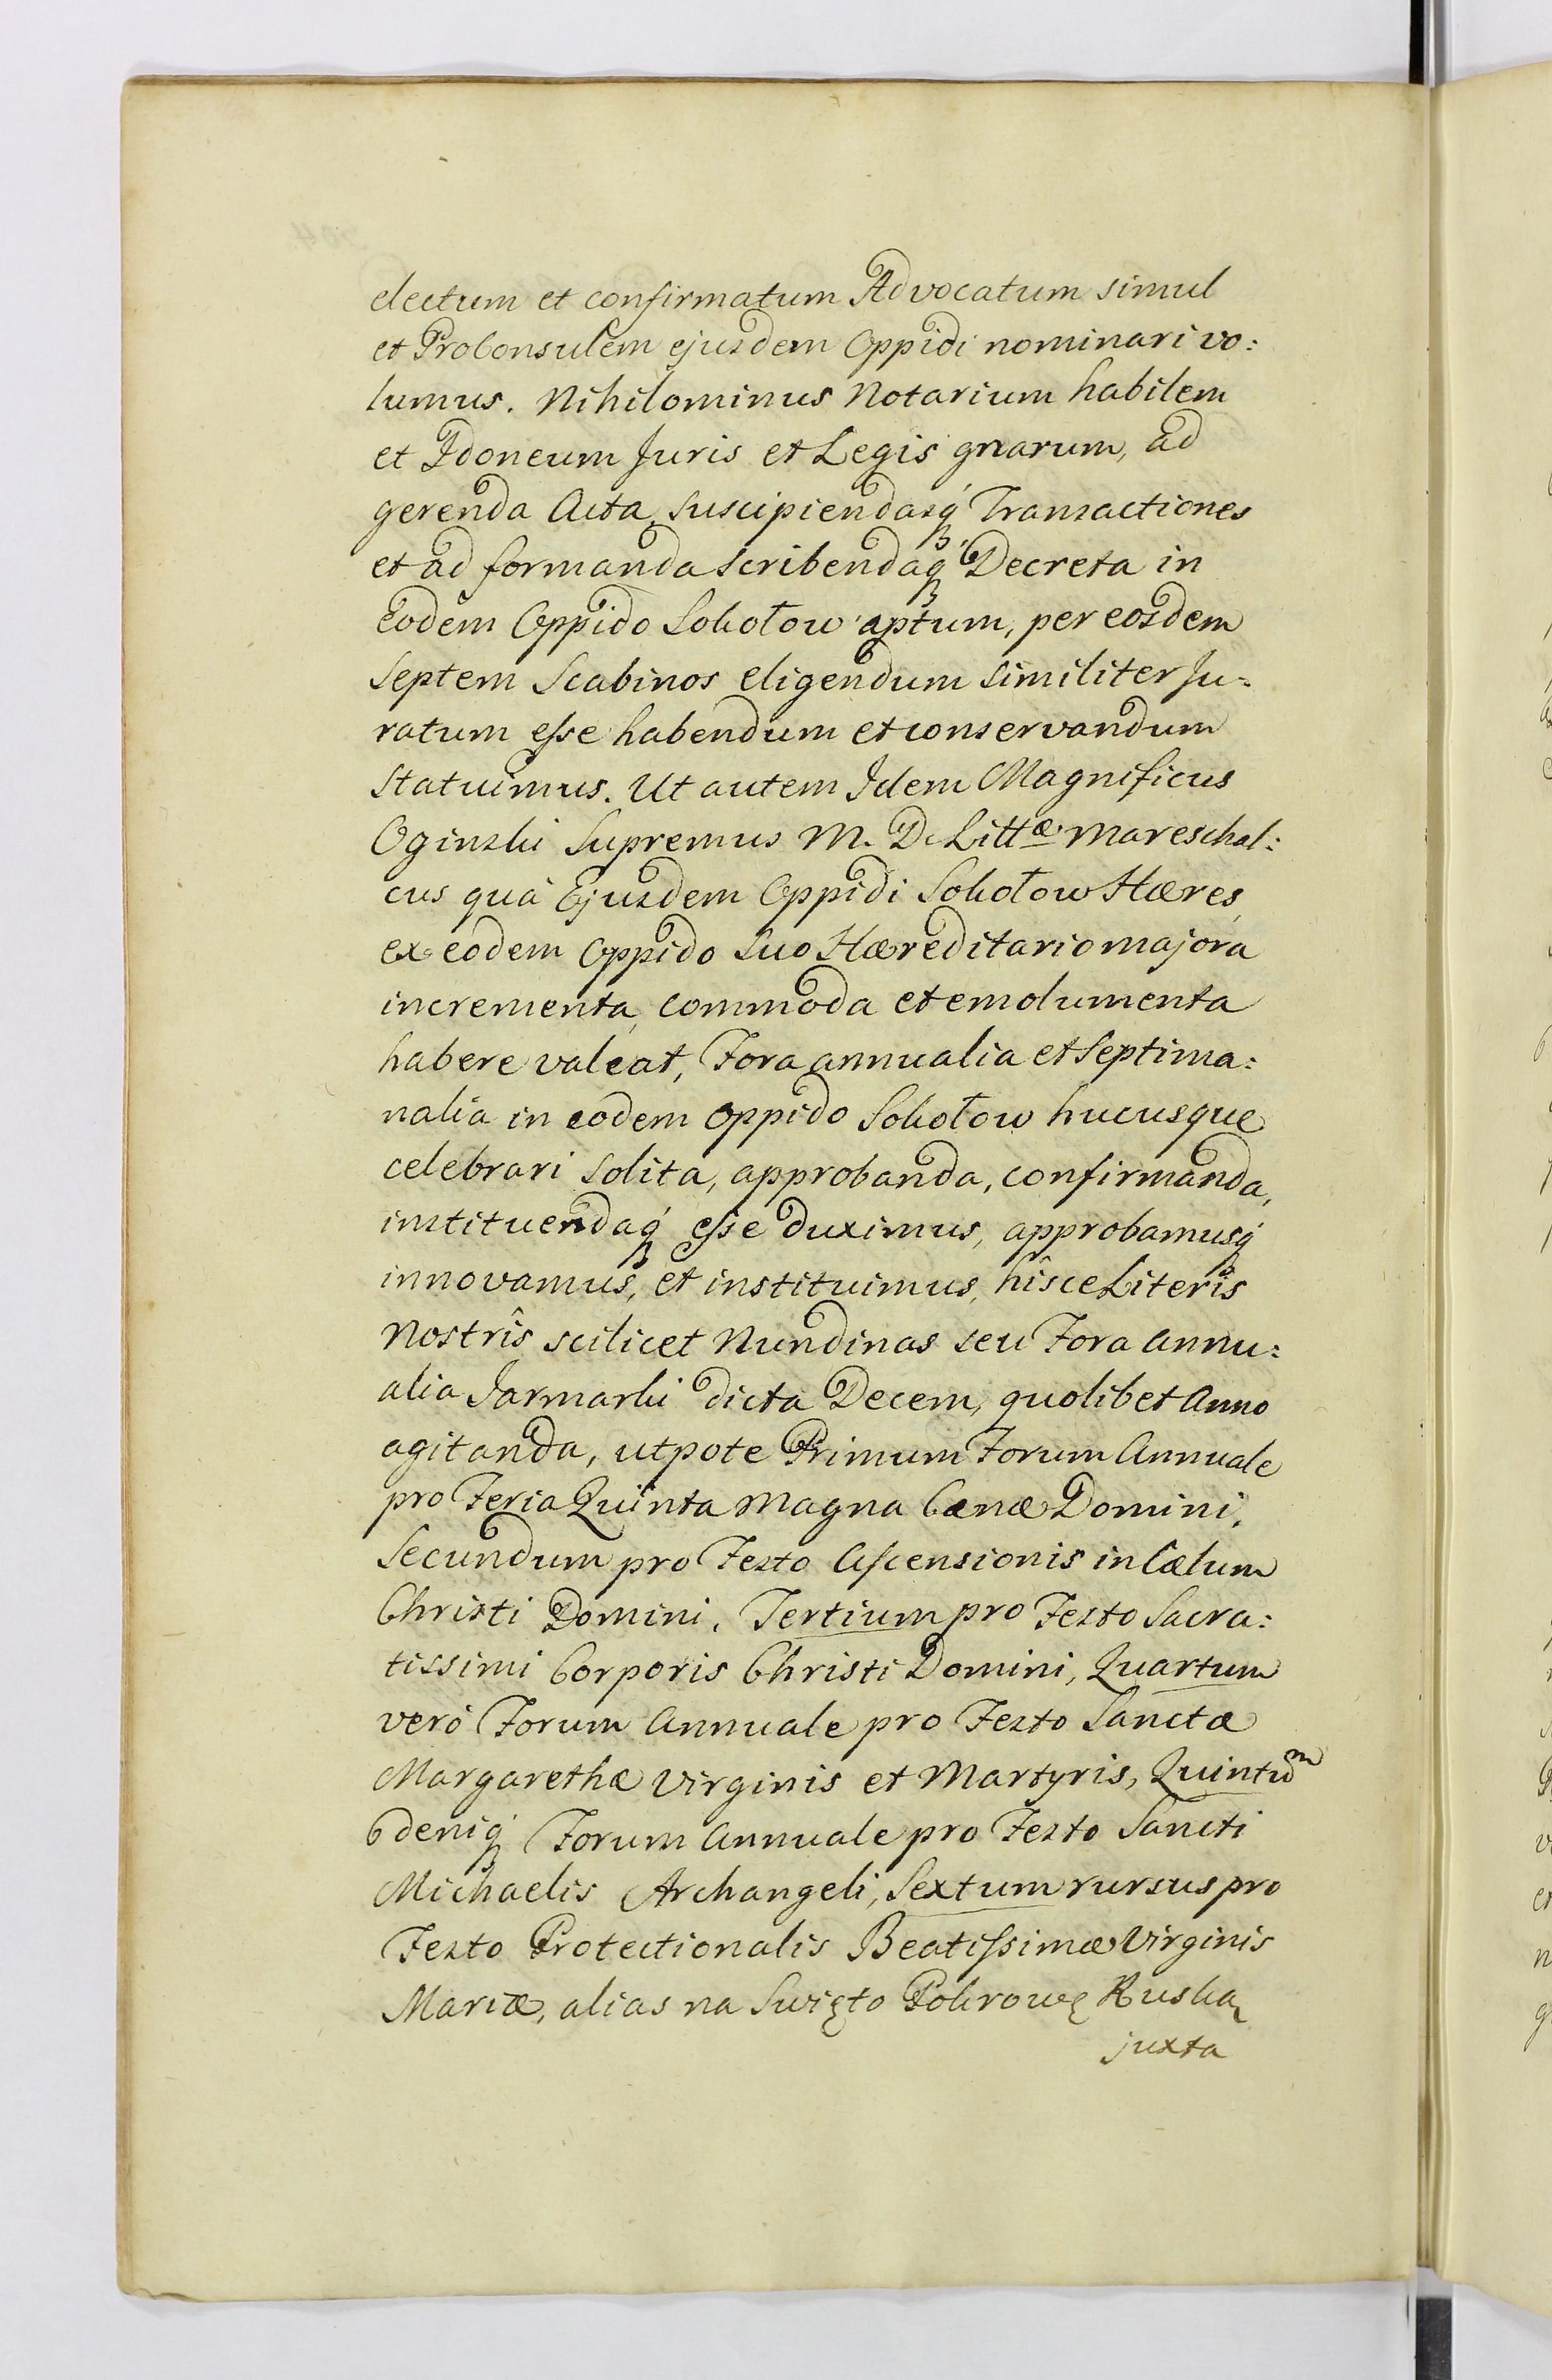 electum et confirmatum Advocatum simul
et ProConsulem ejusdem Oppidi nominari vo:
lumus. Nihilominus Notarium habilem
et Idoneum Juris et Legis gnarum, ad
gerenda Acta, suscipiendasq́ Transactiones
et ad formanda scribendaq́ Decreta in
Eodem Oppido Sokołow aptum, per eosdem
Septem Scabinos eligendum similiter Ju:
ratum esse habendum et conservandum
Statuimus. Ut autem Idem Magnificus
Oginski Supremus M. D. Littæ Mareschal:
cus quà Ejusdem Oppidi Sokołow Hæres,
ex eodem Oppido suo Hæreditario majora
incrementa, commoda et emolumenta
habere valeat, Fora annualia et Septima:
nalia in eodem Oppido Sokołow hucusque
celebrari solita, approbanda, confirmanda,
instituendaq́ esse duximus, approbamusq́
innovamus, et instituimus, hîsce Literîs
Nostrîs scilicet Nundinas seu Fora Annu:
alia Jarmarki dicta Decem, quolibet Anno
agitanda, utpote Primum Forum Annuale
pro Feria Quinta Magna Cænæ Domini,
Secundum pro Festo Ascensionis in Cælum
Christi Domini, Tertium pro Festo Sacra:
tissimi Corporis Christi Domini, Quartum
verò Forum Annuale pro Festo Sanctæ
Margarethæ Virginis et Martyris, Quintum
deniq́ Forum Annuale pro Festo Sancti
Michaelis Archangeli, Sextum rursus pro
Festo Protectionalis Beatissimæ Virginis
Mariæ, alias na Swięto Pokrowę Ruską
juxta